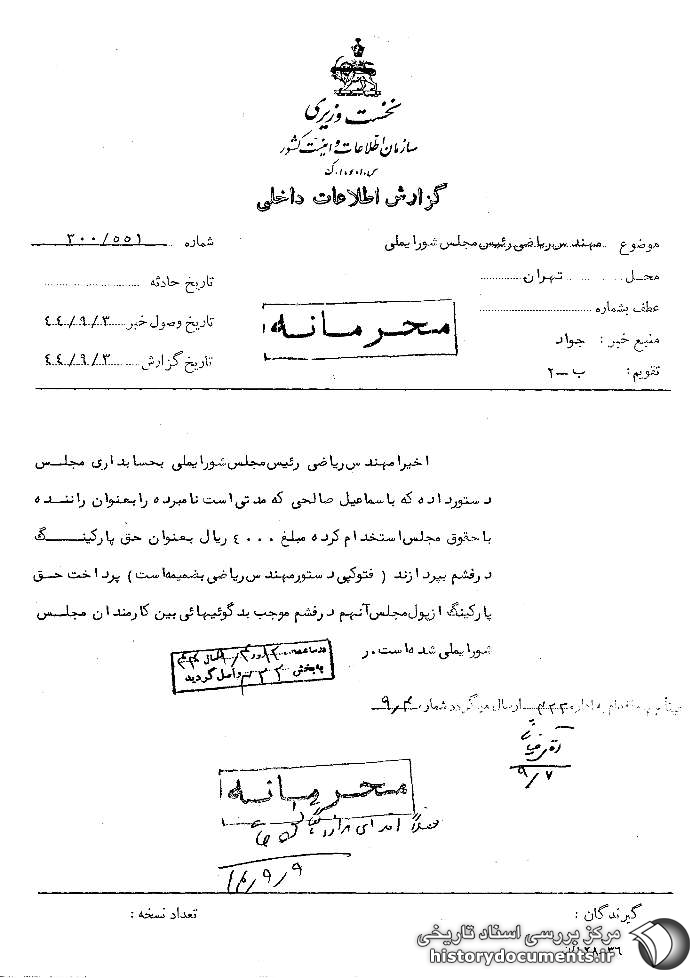 نخست وزیری
سازمان اطلاعات و امنیت کشور
س.ا.و.ا.ک
گزارش اطلاعات داخلی
موضوع مهندس ریاضی رئیس مجلس شورایملی
شماره ۳۰۰/۵۵۱
محل تهران
تاریخ حادثه
عطف بشماره
تاریخ وصول خبر ۴۴/۹/۳
محرمانه
منبع خبر : جواد
تاریخ گزارش ۴۴/۹/۳
تقویم : ب-۲
اخیرا مهندس ریاضی رئیس مجلس شورایملی بحسابداری مجلس
دستورداده که باسماعیل صالحی که مدتی است نامبرده رابعنوان راننده
باحقوق مجلس استخدام کرده مبلغ ۴۰۰۰ ریال بعنوان حق پارکینگ
درفشم بپردازند ( فتوکپی دستورمهندس ریاضی بضمیمه است) پرداخت حق
پارکینگ ازپول مجلس آنهم درفشم موجب بدگوئیهائی بین کارمندان مجلس
شورایملی شده است. ر
ببخش ۳۳۲ واصل گردید
ارسال میگردد شماره ۹/۴
۹/۷
محرمانه
۹/۹
گیرندگان :
تعداد نسخه :
مرکز بررسی اسناد تاریخی
historydocuments.ir
۲۸-۳۶